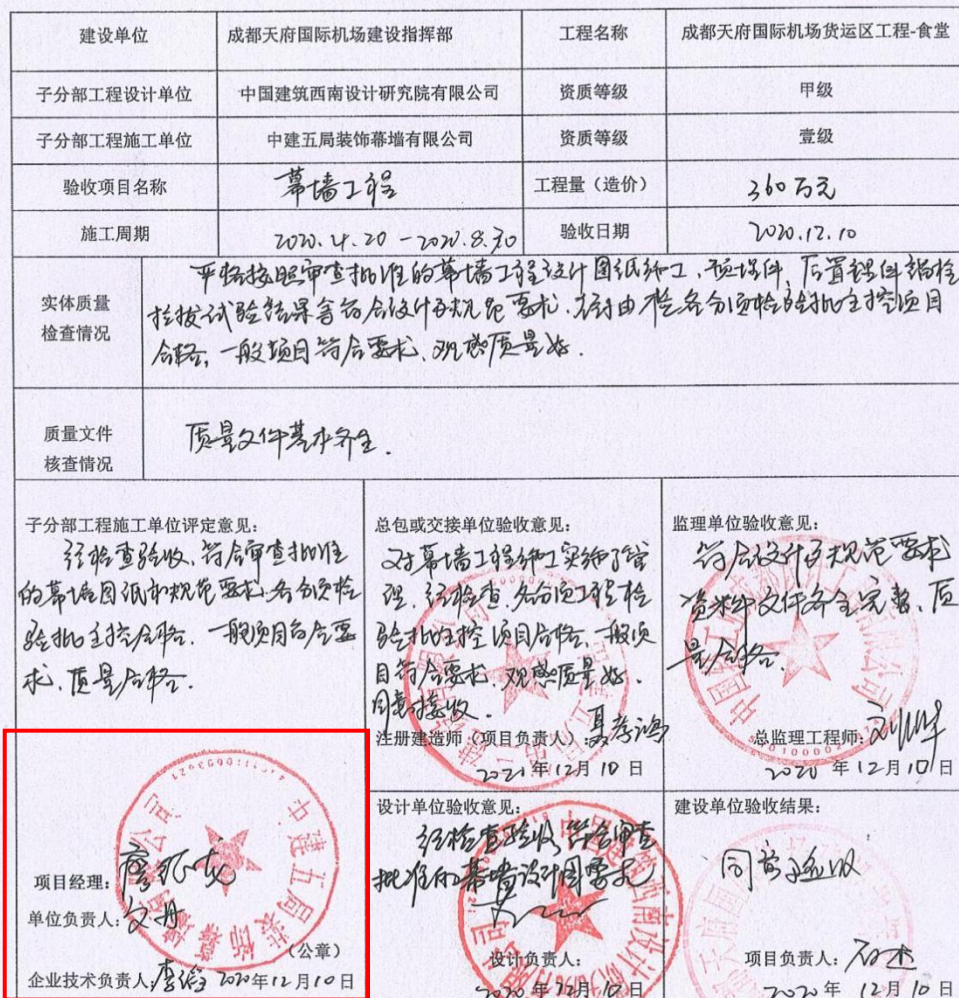 建设单位 成都天府国际机场建设指挥部 工程名称 成都天府国际机场货运区工程-食堂
子分部工程设计单位 中国建筑西南设计研究院有限公司 资质等级 甲级
子分部工程施工单位 中建五局装饰幕墙有限公司 资质等级 壹级
验收项目名称 幕墙工程 工程量（造价） 360万元
施工周期 2020.4.20-2020.8.30 验收日期 2020.12.10
实体质量
检查情况
严格按照审查批准的幕墙工程设计图纸施工、预埋件、后置埋件锚栓
拉拔试验结果等符合设计及规范要求、检各分项检验批主控项目
合格、一般项目符合要求、观感质量好.
质量文件
核查情况
质量文件基本齐全.
子分部工程施工单位评定意见：
经检查验收、符合审查批准
的幕墙图纸和规范要求、各分项检
验批主控合格、一般项目符合要
求、质量合格.
项目经理：
单位负责人：文丹
（公章）
企业技术负责人： 2020年12月10日
中建五局装饰幕墙有限公司
总包或交接单位验收意见：
对幕墙工程施工实施了管
理、经检查、各分项工程检
验批主控项目合格、一般项
目符合要求、观感质量好.
同意接收.
注册建造师（项目负责人）：聂孝鸿
2021年12月10日
监理单位验收意见：
符合设计及规范要求
资料文件齐全完整、质
量合格.
总监理工程师：
2020年12月10日
设计单位验收意见：
经检查验收、符合审查
批准的幕墙设计图要求
设计负责人：
2020年12月10日
建设单位验收结果：
同意验收
项目负责人：石杰
2020年12月10日